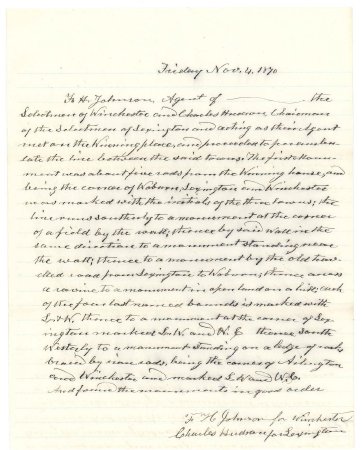 Friday Nov. 4, 1870
F. H. Johnson, Agent of the
Selectmen of Winchester and Charles Hudson Chairman
of the Selectmen of Lexington and acting as their Agent
met on the Kenning place, and proceeded to perambu-
late the line between the said towns. The first Monu-
ment was about five rods from the Kenning house, and
being the corner of Woburn, Lexington and Winchester
was marked with the initials of the three towns; the
line runs southerly to a monument at the corner
of a field by the wall; thence by said wall in the
same direction to a monument standing near
the wall; thence to a monument by the old trav-
elled road from Lexington to Woburn; thence across
a ravine to a monument in open land on a hill; each
of the four last named bounds is marked with
L & W. thence to a monument at the corner of Lex
ington marked L. W. and W. C. thence South
Westerly to a monument standing on a ledge of rocks
braced by iron rods, being the corner of Arlington
and Winchester and marked L. W and W. C.
And found the monuments in good order
F. H Johnson for Winchester
Charles Hudson for Lexington